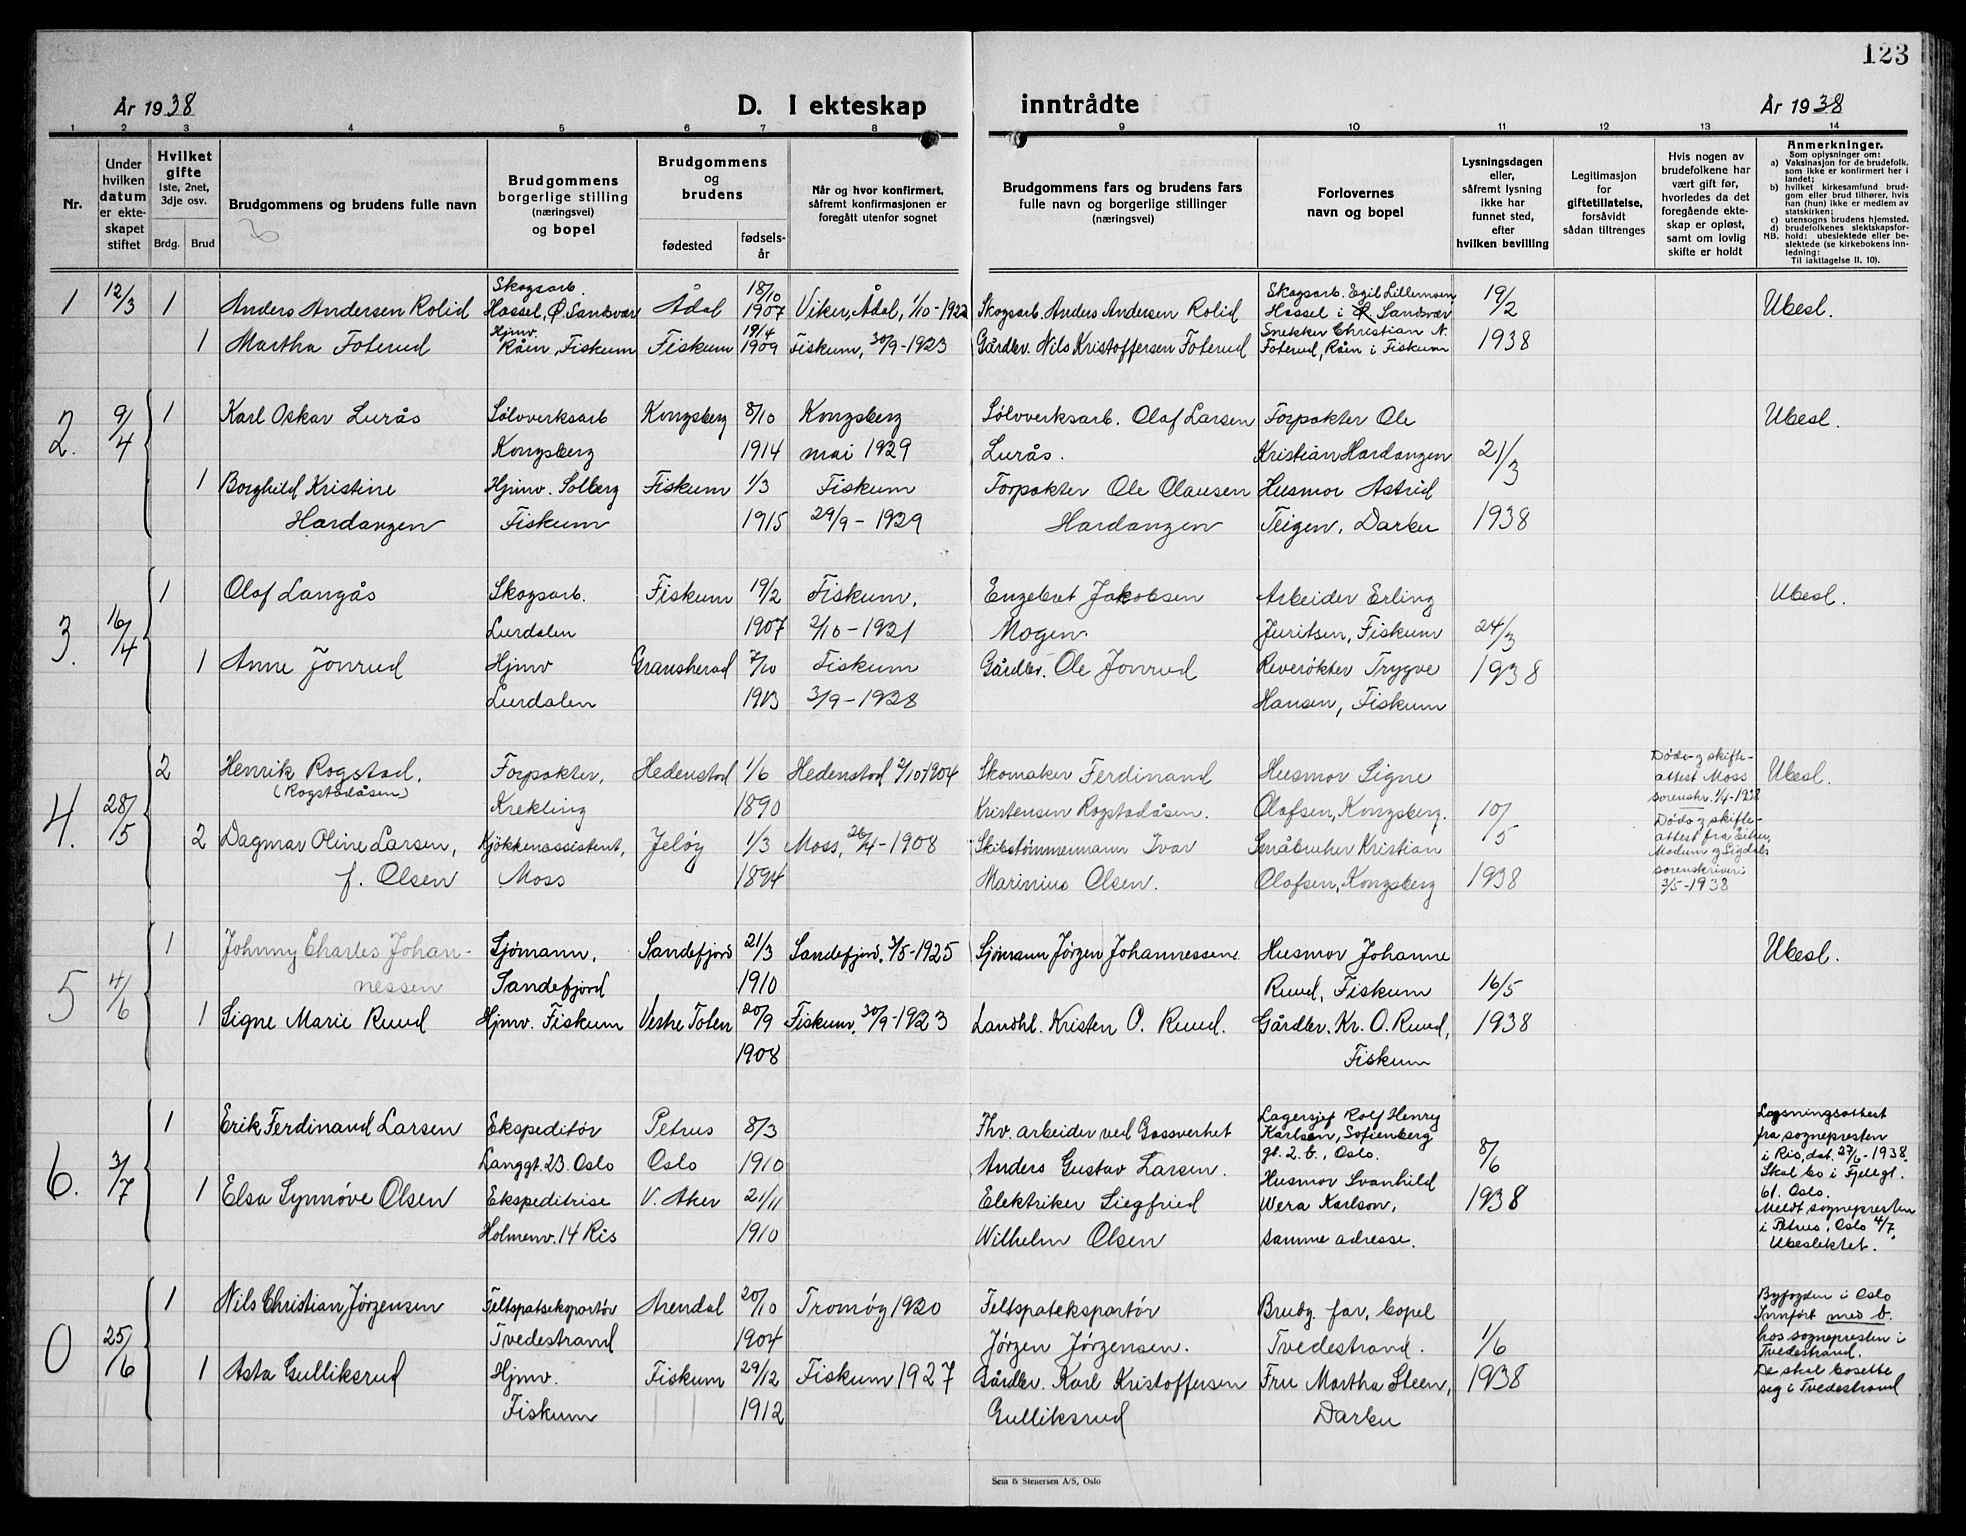 123
År 1938 D. I ekteskap inntrådte År 1938
1 2 3 4 5 6 7 8 9 10 11 12 13 14
Nr.
Under hvilken datum er ekteskapet stiftet
Hvilket gifte
1ste, 2net, 3dje osv.
Brdg. Brud
Brudgommens og brudens fulle navn
Brudgommens borgerlige stilling (næringsvei) og bopel
Brudgommens og brudens
fødested
fødsels-år
Når og hvor konfirmert, såfremt konfirmasjonen er foregått utenfor sognet
Brudgommens fars og brudens fars fulle navn og borgerlige stillinger (næringsvei)
Forlovernes navn og bopel
Lysningsdagen eller, såfremt lysning ikke har funnet sted, efter hvilken bevilling
Legitimasjon for giftetillatelse, forsåvidt sådan tiltrenges
Hvis nogen av brudefolkene har vært gift før, hvorledes da det foregående ekteskap er opløst, samt om lovlig skifte er holdt
Anmerkninger.
Som oplysninger om:
a) Vaksinasjon for de brudefolk, som ikke er konfirmert her i landet;
b) hvilket kirkesamfund brudgom eller brud tilhører, hvis han (hun) ikke er medlem av statskirken;
c) utensogns brudens hjemsted.
d) brudefolkenes slektskapsforhold: ubeslektede eller beslektede (se kirkebokens innledning:
NB. Til iakttagelse II. 10).
1 12/3 1 Anders Andersen Rolid Skogsarb. Hassel, Ø. Sandsvær Ådal 18/10 1907 Viker, Ådal, 1/10-1922 Skogsarb. Anders Andersen Rolid Skogsarb. Egil Lillemoen, Hassel i Ø. Sandsvær 19/2 Ubesl.
1 Martha Foterud Hjmv. Råen, Fiskum Fiskum 19/4 1909 Fiskum, 30/9-1923 Gårdbr. Nils Kristoffersen Foterud Snekker Christian N. Foterud, Råen i Fiskum 1938
2. 9/4 1 Karl Oskar Lurås Sølvverksarb Kongsberg 8/10 Kongsberg Sølvverksarb. Olaf Larsen Forpakter Ole Ubesl.
Kongsberg 1914 mai 1929 Lurås. Kristian Hardangen 21/3
1 Borghild Kristine Hjmv. Solberg Fiskum 1/3 Fiskum Forpakter Ole Olausen Husmor Astrid
Hardangen Fiskum 1915 29/9-1929 Hardangen Teigen, Darbu 1938
3. 16/4 1 Olaf Langås Skogsarb. Fiskum 19/2 Fiskum, Engebret Jakobsen Arbeider Erling Ubesl.
Lurdalen 1907 2/10-1921 Mogen Juritsen, Fiskum 24/3
1 Anne Jonrud Hjmv Gransherad 7/10 Fiskum Gårdbr. Ole Jonrud Reverøkter Trygve 1938
Lurdalen 1913 3/9-1928 Hansen, Fiskum
4. 28/5 2 Henrik Rogstad, Forpakter, Hedenstad 1/6 Hedenstad, 2/10 1904 Skomaker Ferdinand Husmor Signe Døds- og skifte- attest Moss Ubesl.
(Rogstadåsen) Krekling 1890 Kristensen Rogstadåsen. Olafsen, Kongsberg. 10/5 sorenskr. 1/4-1938
2 Dagmar Oline Larsen, Kjøkkenassistent, Jeløy 1/3 Moss, 26/4-1908 Skibstømmermann Ivar Småbruker Kristian Døds- og skifte- attest fra Eiker, Modum og Sigdals
f. Olsen Moss 1894 Marinius Olsen. Olafsen, Kongsberg 1938 sorenskriveri 3/5-1938
5 4/6 1 Johnny Charles Johan- Sjømann, Sandefjord 21/3 Sandefjord, 3/5-1925 Sjømann Jørgen Johannessen Husmor Johanne Ubesl.
nessen Sandefjord 1910 Ruud, Fiskum 16/5
1 Signe Marie Ruud Hjmv. Fiskum Vestre Toten 20/9 Fiskum, 30/9-1923 Landhl. Kristen O. Ruud. Gårdbr. Kr. O. Ruud, 1938
1908 Fiskum
6. 3/7 1 Erik Ferdinand Larsen Ekspeditør Petrus 8/3 Fhv. arbeider ved Gassverket Lagersjef Rolf Henry Karlsen, Sofienberg Lysningsattest fra sognepresten
Langgt. 23. Oslo Oslo 1910 Anders Gustav Larsen. gt. 2. b., Oslo. 8/6 i Ris, dat. 27/6-1938.
1 Elsa Synnøve Olsen Ekspeditrise V. Aker 21/11 Elektriker Siegfried Husmor Svanhild Wera Karlson, 1938 Skal bo i Fjellgt. 61. Oslo.
Holmenv. 14 Ris 1910 Wilhelm Olsen samme adresse. Meldt sognepresten i Petrus, Oslo 4/7. Ubeslektet.
0 25/6 1 Nils Christian Jørgensen Feltspatseksportør Arendal 20/10 Tromøy 1920 Feltspateksportør Brudg. far, bopel Byfogden i Oslo Innført med b.
Tvedestrand 1904 Jørgen Jørgensen. Tvedestrand. 1/6 hos sognepresten i Tvedestrand.
1 Asta Gulliksrud Hjmv. Fiskum 29/12 Fiskum 1927 Gårdbr. Karl Kristoffersen Fru Martha Steen, 1938 De skal bosette seg i Tvedestrand
Fiskum 1912 Gulliksrud Darbu
Sem & Stenersen A/S, Oslo